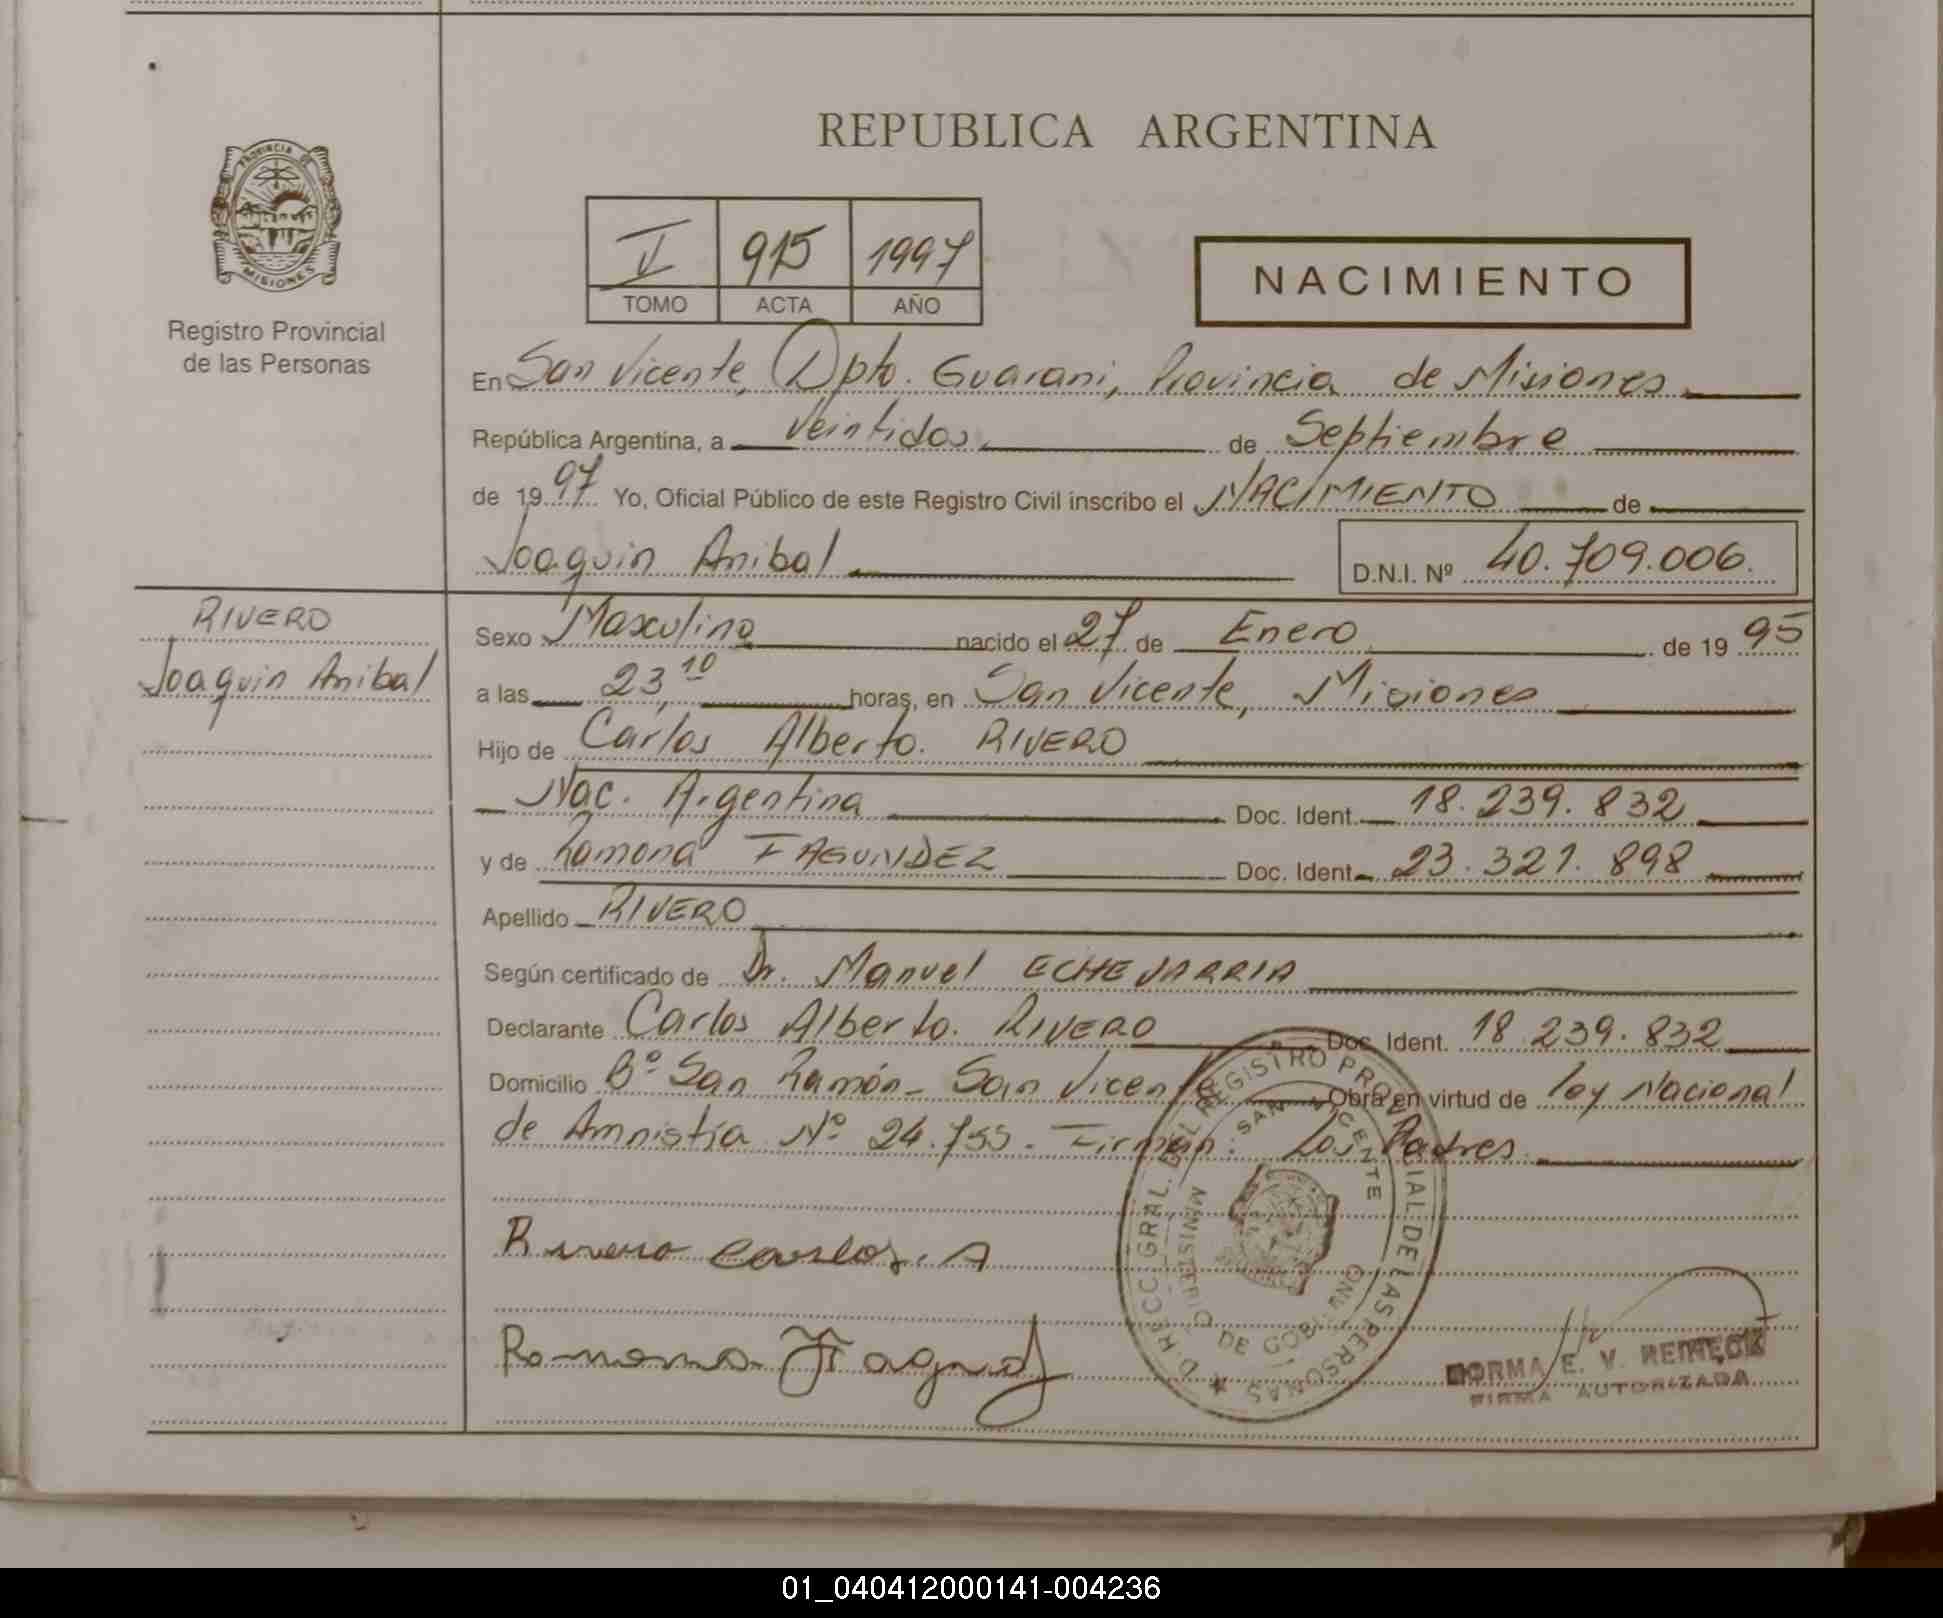 REPUBLICA ARGENTINA
PROVINCIA DE
MISIONES
Registro Provincial
de las Personas
V 915 1997
TOMO ACTA AÑO
NACIMIENTO
En San Vicente, Dpto. Guarani, Provincia de Misiones
República Argentina, a Veintidos de Septiembre
de 1997 Yo, Oficial Público de este Registro Civil inscribo el NACIMIENTO de
Joaquin Anibal D.N.I. Nº 40.709.006.
RIVERO
Joaquin Anibal
Sexo Masculino nacido el 27 de Enero de 1995
a las 23,10 horas, en San Vicente, Misiones
Hijo de Carlos Alberto. RIVERO
Nac. Argentina Doc. Ident. 18.239.832
y de Ramona FAGUNDEZ Doc. Ident. 23.321.898
Apellido RIVERO
Según certificado de Dr. Manuel ECHEVARRIA
Declarante Carlos Alberto. RIVERO Doc. Ident. 18.239.832
Domicilio Bº San Ramón - San Vicente Obra en virtud de ley Nacional
de Amnistía Nº 24.755. Firman: Los Padres
Rivero Carlos. A
Ramona Fagund
DIRECC. GRAL. DEL REGISTRO PROVINCIAL DE LAS PERSONAS
SAN VICENTE
MINISTERIO DE GOBIERNO
NORMA E. V. REINECK
FIRMA AUTORIZADA
01_040412000141-004236